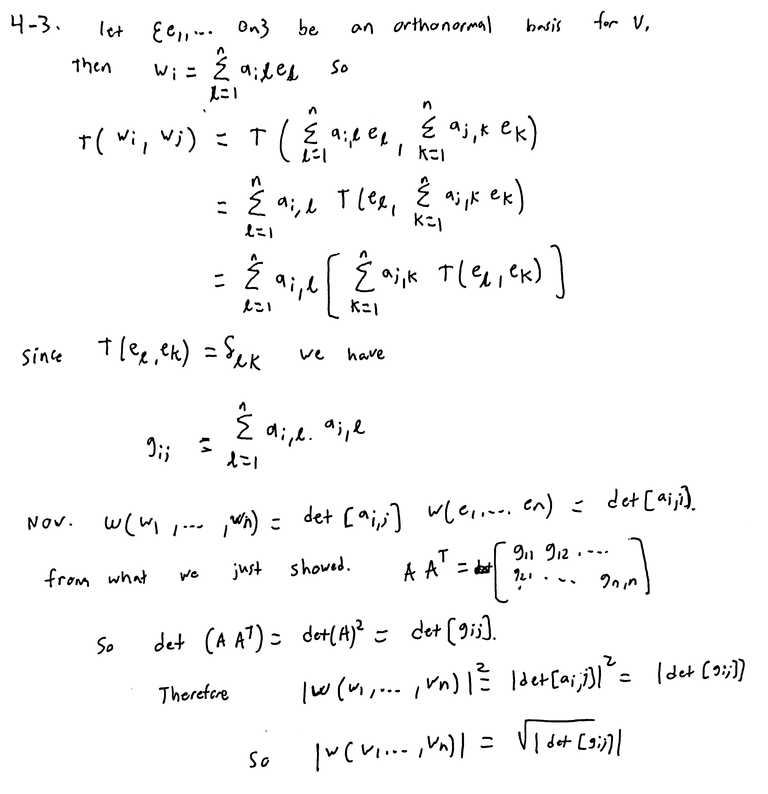 4-3. let {e₁,... en} be an orthonormal basis for V,
then wi = ∑_{l=1}^{n} a_{i,l} e_l so
T(wi, wj) = T(∑_{l=1}^{n} a_{i,l} e_l, ∑_{k=1}^{n} a_{j,k} e_k)
= ∑_{l=1}^{n} a_{i,l} T(e_l, ∑_{k=1}^{n} a_{j,k} e_k)
= ∑_{l=1}^{n} a_{i,l} [∑_{k=1}^{n} a_{j,k} T(e_l, e_k)]
Since T(e_l, e_k) = δ_{lk} we have
g_{ij} = ∑_{l=1}^{n} a_{i,l} . a_{j,l}
Nov. w(w₁, ..., wn) = det [a_{i,j}] w(e₁,... en) = det [a_{i,j}].
from what we just showed. A Aᵀ = [g₁₁ g₁₂ .... 
g₂₁ ... g_{n,n}]
So det (A Aᵀ) = det(A)² = det [g_{ij}].
Therefore |w(v₁, ..., vn)|² = |det[a_{i,j}]|² = |det [g_{ij}]|
So |w(v₁..., vn)| = √|det [g_{ij}]|